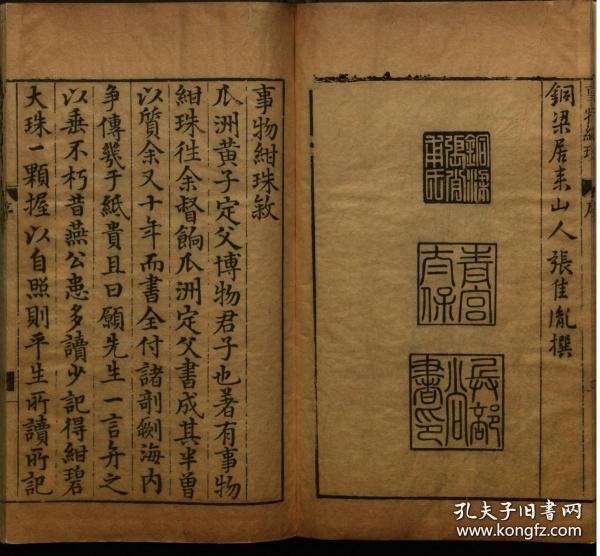 事物紺珠
序
銅梁居來山人張佳胤撰
銅梁
張肖
甫氏
青宮
太保
兵部
尚
書印
事物紺珠敘
瓜洲黃子定父博物君子也著有事物
紺珠徃余督餉瓜洲定父書成其半曾
以質余又十年而書全付諸剞劂海内
争傳㡬于紙貴且曰願先生一言弁之
以垂不朽昔燕公患多讀少記得紺碧
大珠一顆握以自照則平生所讀所記
序
孔夫子旧书网
www.kongfz.com